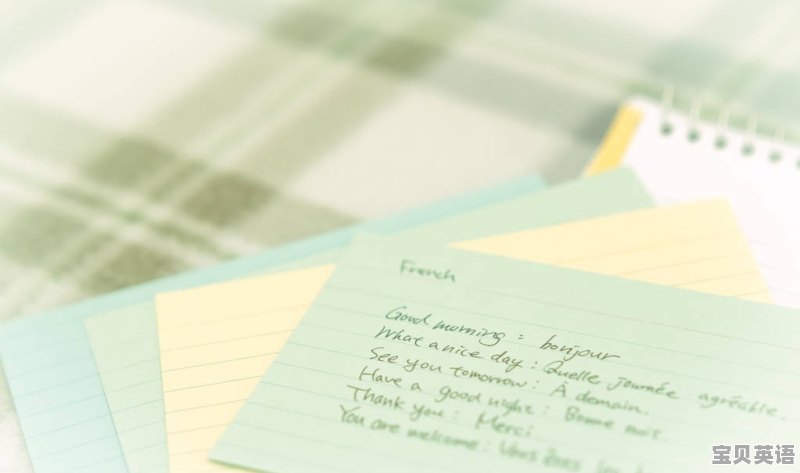 French
Good morning : bonjour
What a nice day : Quelle journée agréable.
See you tomorrow : À demain.
Have a good night : Bonne nuit.
Thank you : Merci.
You are welcome : Vous êtes
宝贝英语